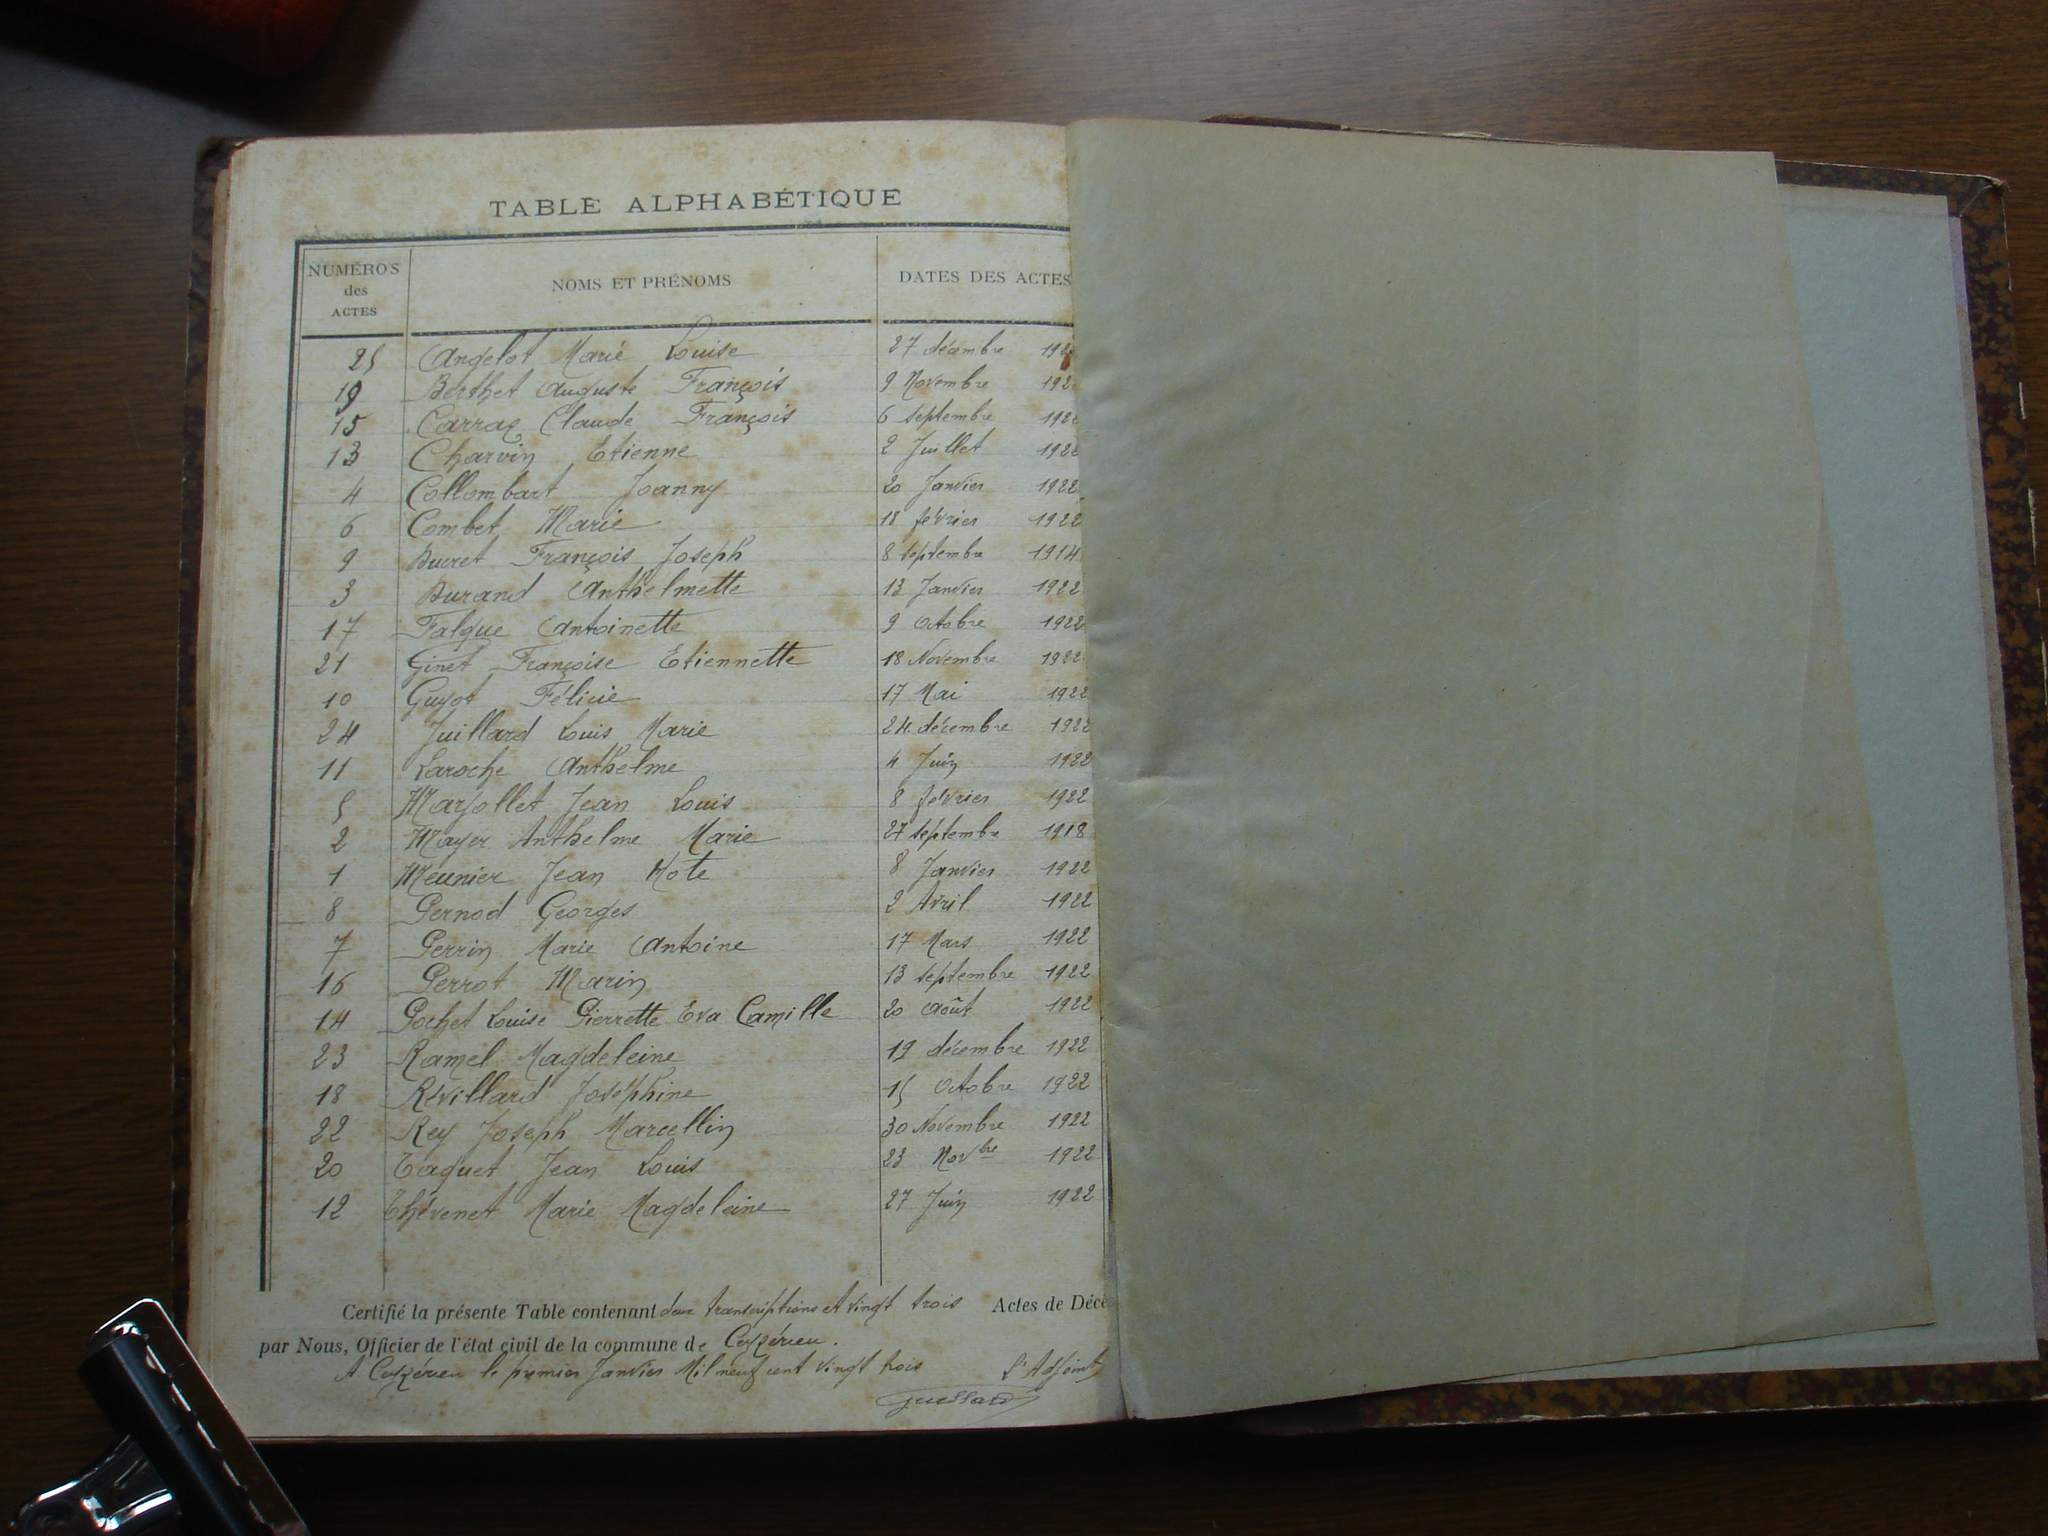 TABLE ALPHABÉTIQUE
NUMÉROS des ACTES NOMS ET PRÉNOMS DATES DES ACTES
25 Angelot Marie Louise 27 décembre
19 Berthet Auguste François 9 Novembre
15 Carraz Claude François 6 septembre 1922
13 Charvin Etienne 2 Juillet 1922
4 Collombart Joanny 20 Janvier 1922
6 Combet Marie 18 février 1922
9 Ducret François Joseph 8 septembre 1914
3 Durand Anthelmette 13 Janvier 1922
17 Falque Antoinette 9 Octobre 1922
21 Ginet Françoise Etiennette 18 Novembre 1922
10 Guyot Félicie 17 Mai 1922
24 Juillard Louis Marie 24 décembre 1922
11 Laroche Anthelme 4 Juin 1922
5 Marjollet Jean Louis 8 février 1922
2 Mayer Anthelme Marie 27 septembre 1918
1 Meunier Jean 8 Janvier 1922
8 Pernod Georges 2 Avril 1922
7 Perrin Marie Antoine 17 Mars 1922
16 Perrot Marin 13 septembre 1922
14 Pochet Louise Pierrette Eva Camille 20 Août 1922
23 Ramel Magdeleine 19 décembre 1922
18 Révillard Joséphine 15 Octobre 1922
22 Rey Joseph Marcellin 30 Novembre 1922
20 Taquet Jean Louis 23 Novbre 1922
12 Thévenet Marie Magdeleine 27 Juin 1922
Certifié la présente Table contenant deux transcriptions et vingt trois Actes de Décè
par Nous, Officier de l'état civil de la commune de Ceyzérieu.
A Ceyzérieu le premier Janvier Mil neuf cent vingt trois L'Adjoint